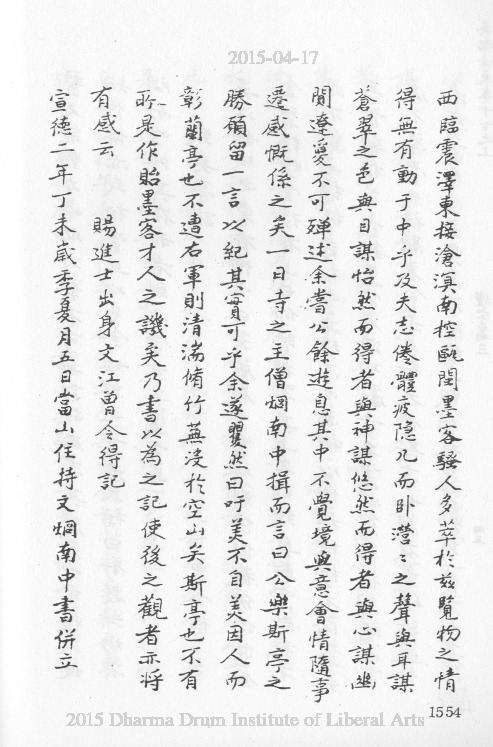 2015-04-17
西臨震澤東接滄溟南控甌閩墨客騷人多萃於茲覽物之情
得無有動于中乎及夫志倦體疲隱几而卧瀯〻之聲與耳謀
蒼翠之色與目謀怡然而得者與神謀悠然而得者與心謀幽
閴遼敻不可殫述余嘗公餘遊息其中不覺境與意會情隨事
遷感慨係之矣一日寺之主僧烱南中揖而言曰公樂斯亭之
勝願留一言以紀其實可乎余遂矍然曰吁美不自美因人而
彰蘭亭也不遭右軍則清湍脩竹蕪沒於空山矣斯亭也不有
所是作貽墨客才人之譏矣乃書以為之記使後之觀者亦將
有感云　賜進士出身文江曾令得記
宣德二年丁未歲季夏月五日當山住持文烱南中書併立
1554
2015 Dharma Drum Institute of Liberal Arts